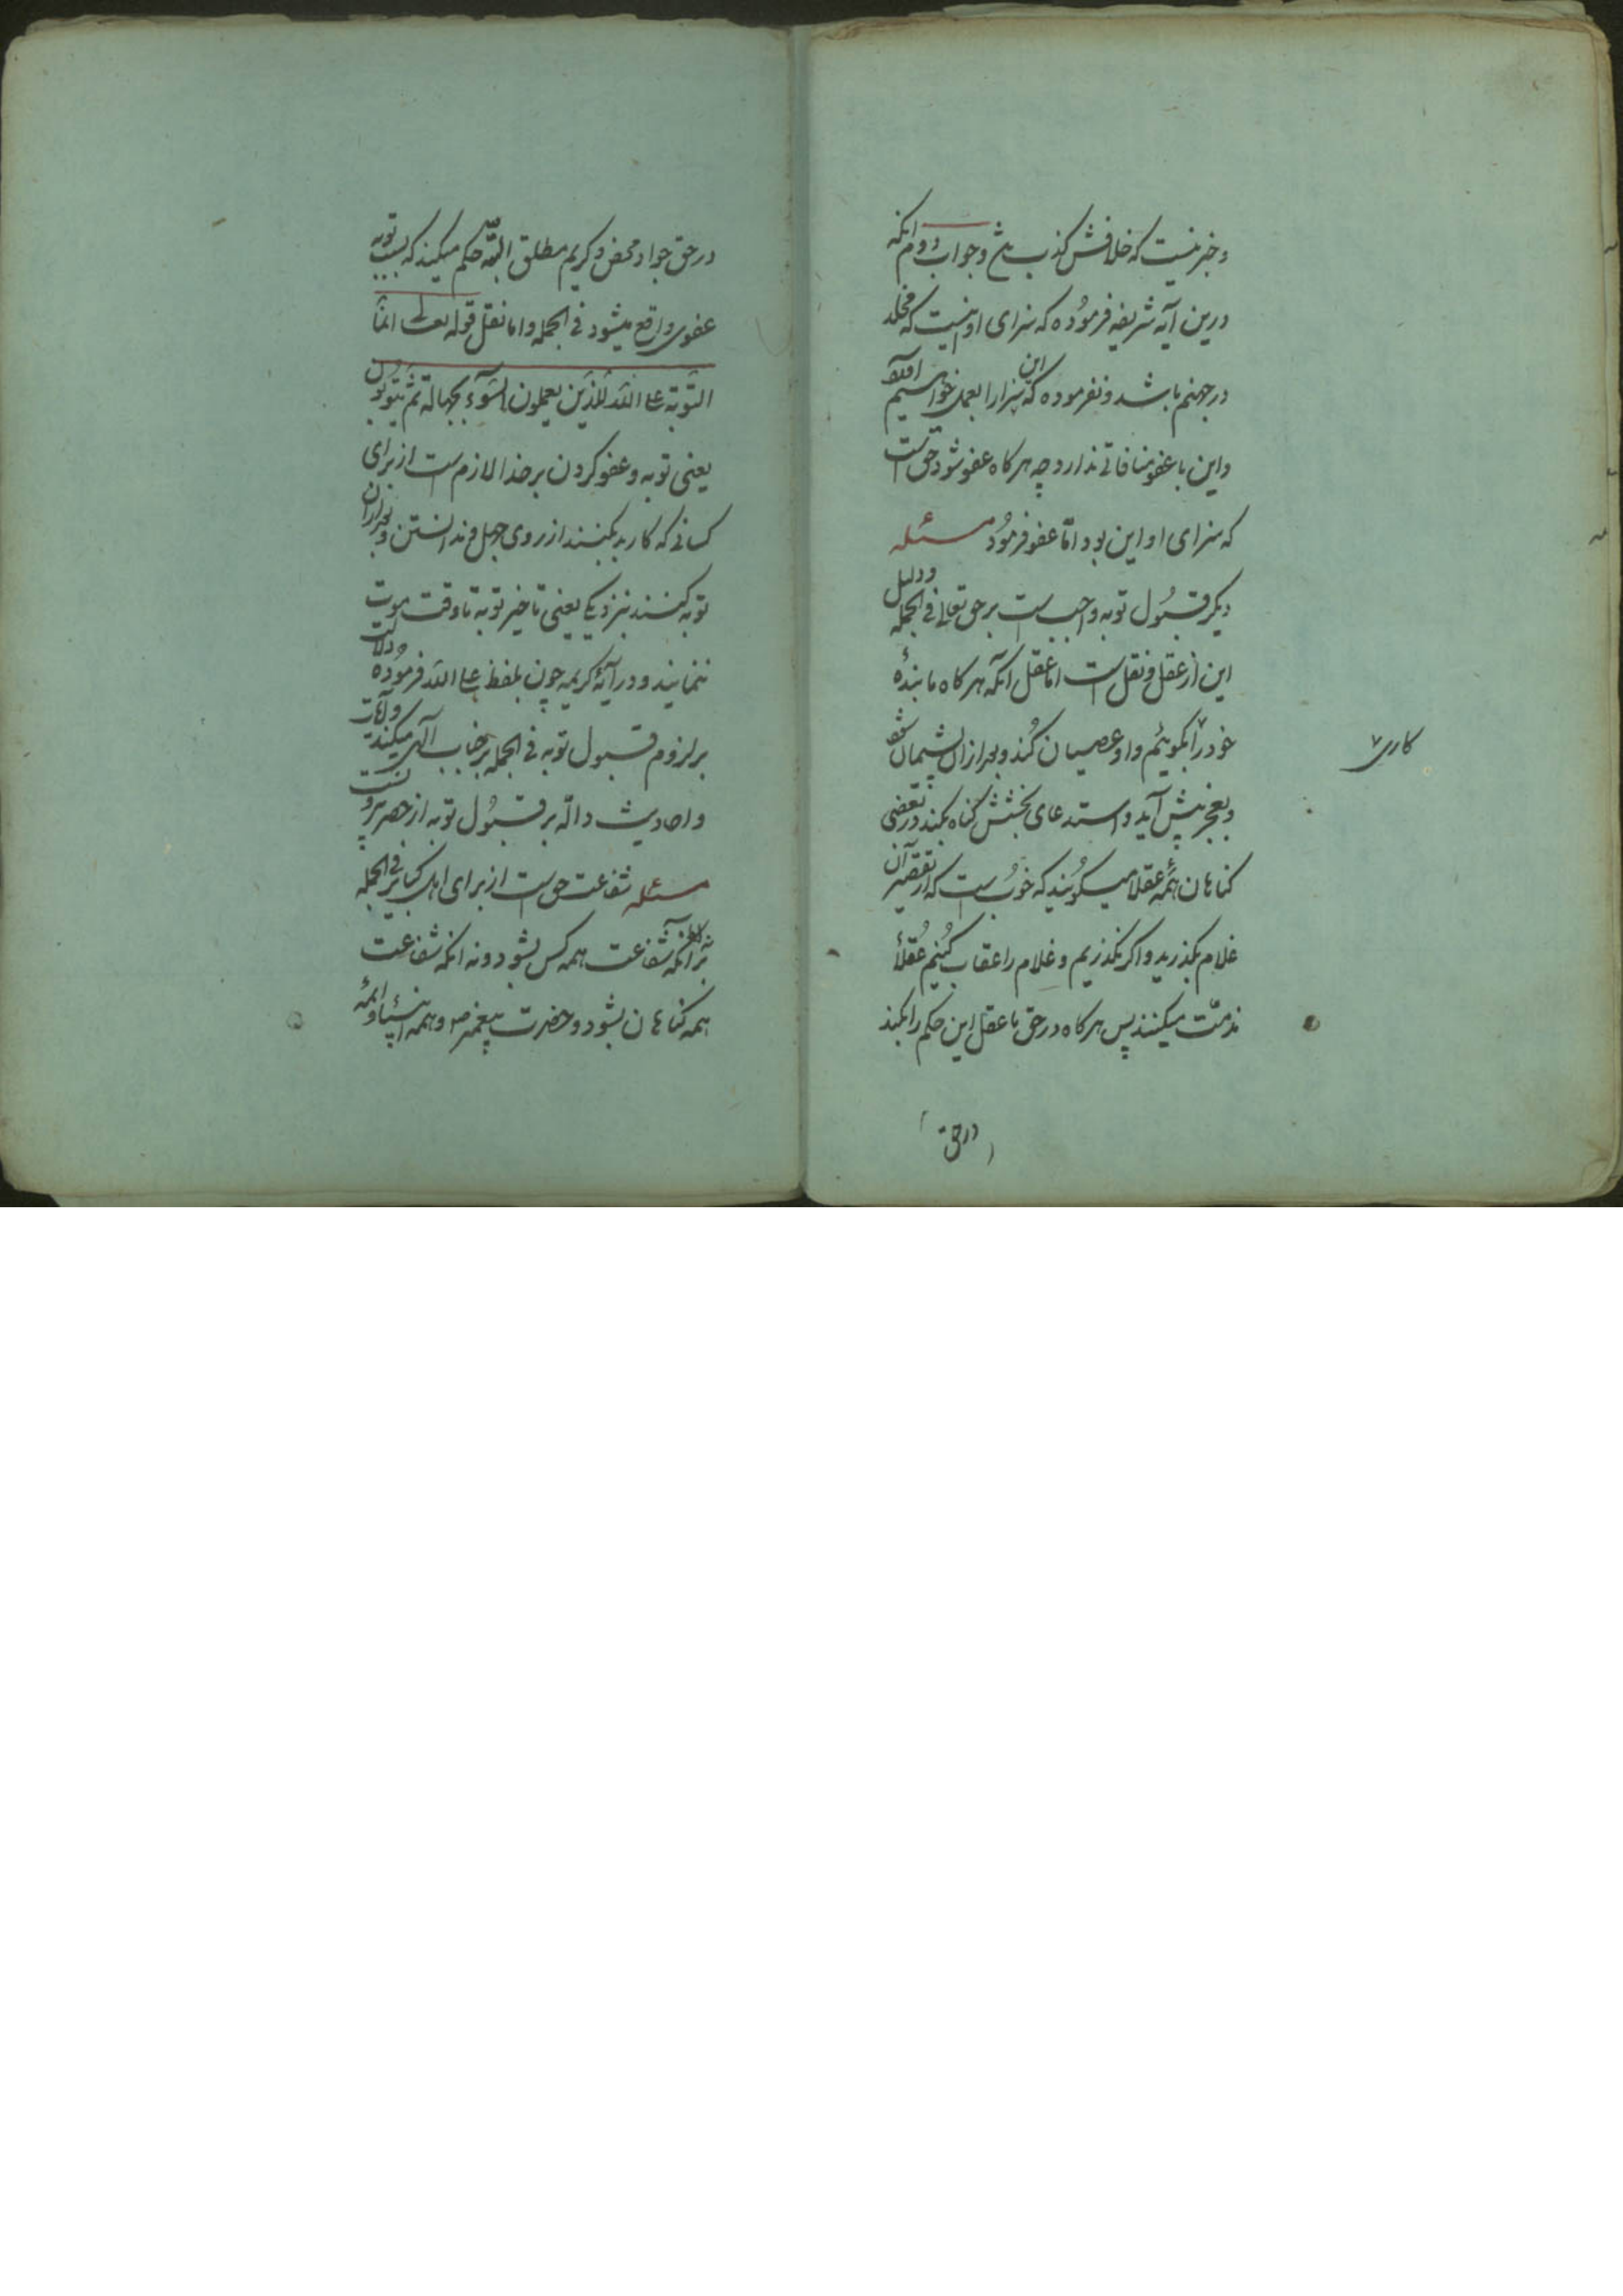 و خبر نیست که خلافش کذب باشد و جواب دوم آنکه
درین آیه شریفه فرموده که سزای او اینست که مخلد
در جهنم باشد و نفرموده که این سزا را بعمل خواهیم آورد
و این با عفو منافاتی ندارد چه هرکاه عفو شود حق است
که سزای او این بود امّا عفو فرمُود مسئله
دیکر قبُول توبه واجب است بر حق تعالی فی الجمله و دلیل
این از عقل و نقل است اما عقل آنکه هرکاه ما بندهٔ
خود را بکوئیم و او عصیان کُند و بعد از ان پشیمان شود
کاری
و بعجز پیش آید و استدعای بخشش کناه بکند در بعضی
کناهان همه عقلا میکویند که خوُب است که از تقصیر آن
غلام بکذرید و اکر نکذریم و غلام را عقاب کُنیم عُقلأ
مذمّت میکنند پس هرکاه در حق ما عقل این حکم را بکند
در حق
در حق جواد محض و کریم مطلق البتّه حکم میکند که بسبب توبه
عفوی واقع میشود فی الجمله و اما نقل قوله تعالی انمّا
التّوبة علی اللّه للذّین یعملون السّوٓء بجهالة ثمّ یتوبون
یعنی توبه و عفو کردن بر خدا لازم است از برای
کسانی که کار بد بکنند از روی جهل و ندانستن و بعد از ان
توبه کنند بنزدیکی یعنی تا خیر توبه تا وقت موت
ننمایند و در آیهٔ کریمه چون بلفظ علی اللّه فرمُوده دلالت
بر لزوم قبول توبه فی الجمله بر جناب آلهی میکند و آیات
و احادیث دالّه بر قبُول توبه از حصر بیرونست
مسئله شفاعت حق است از برای اهل کبایر فی الجمله
نه آنکه شفاعت همه کس بشود و نه آنکه شفاعت
همه کناهان بشود و حضرت پیغمبر ص و همه انبیا و ائمهٔ